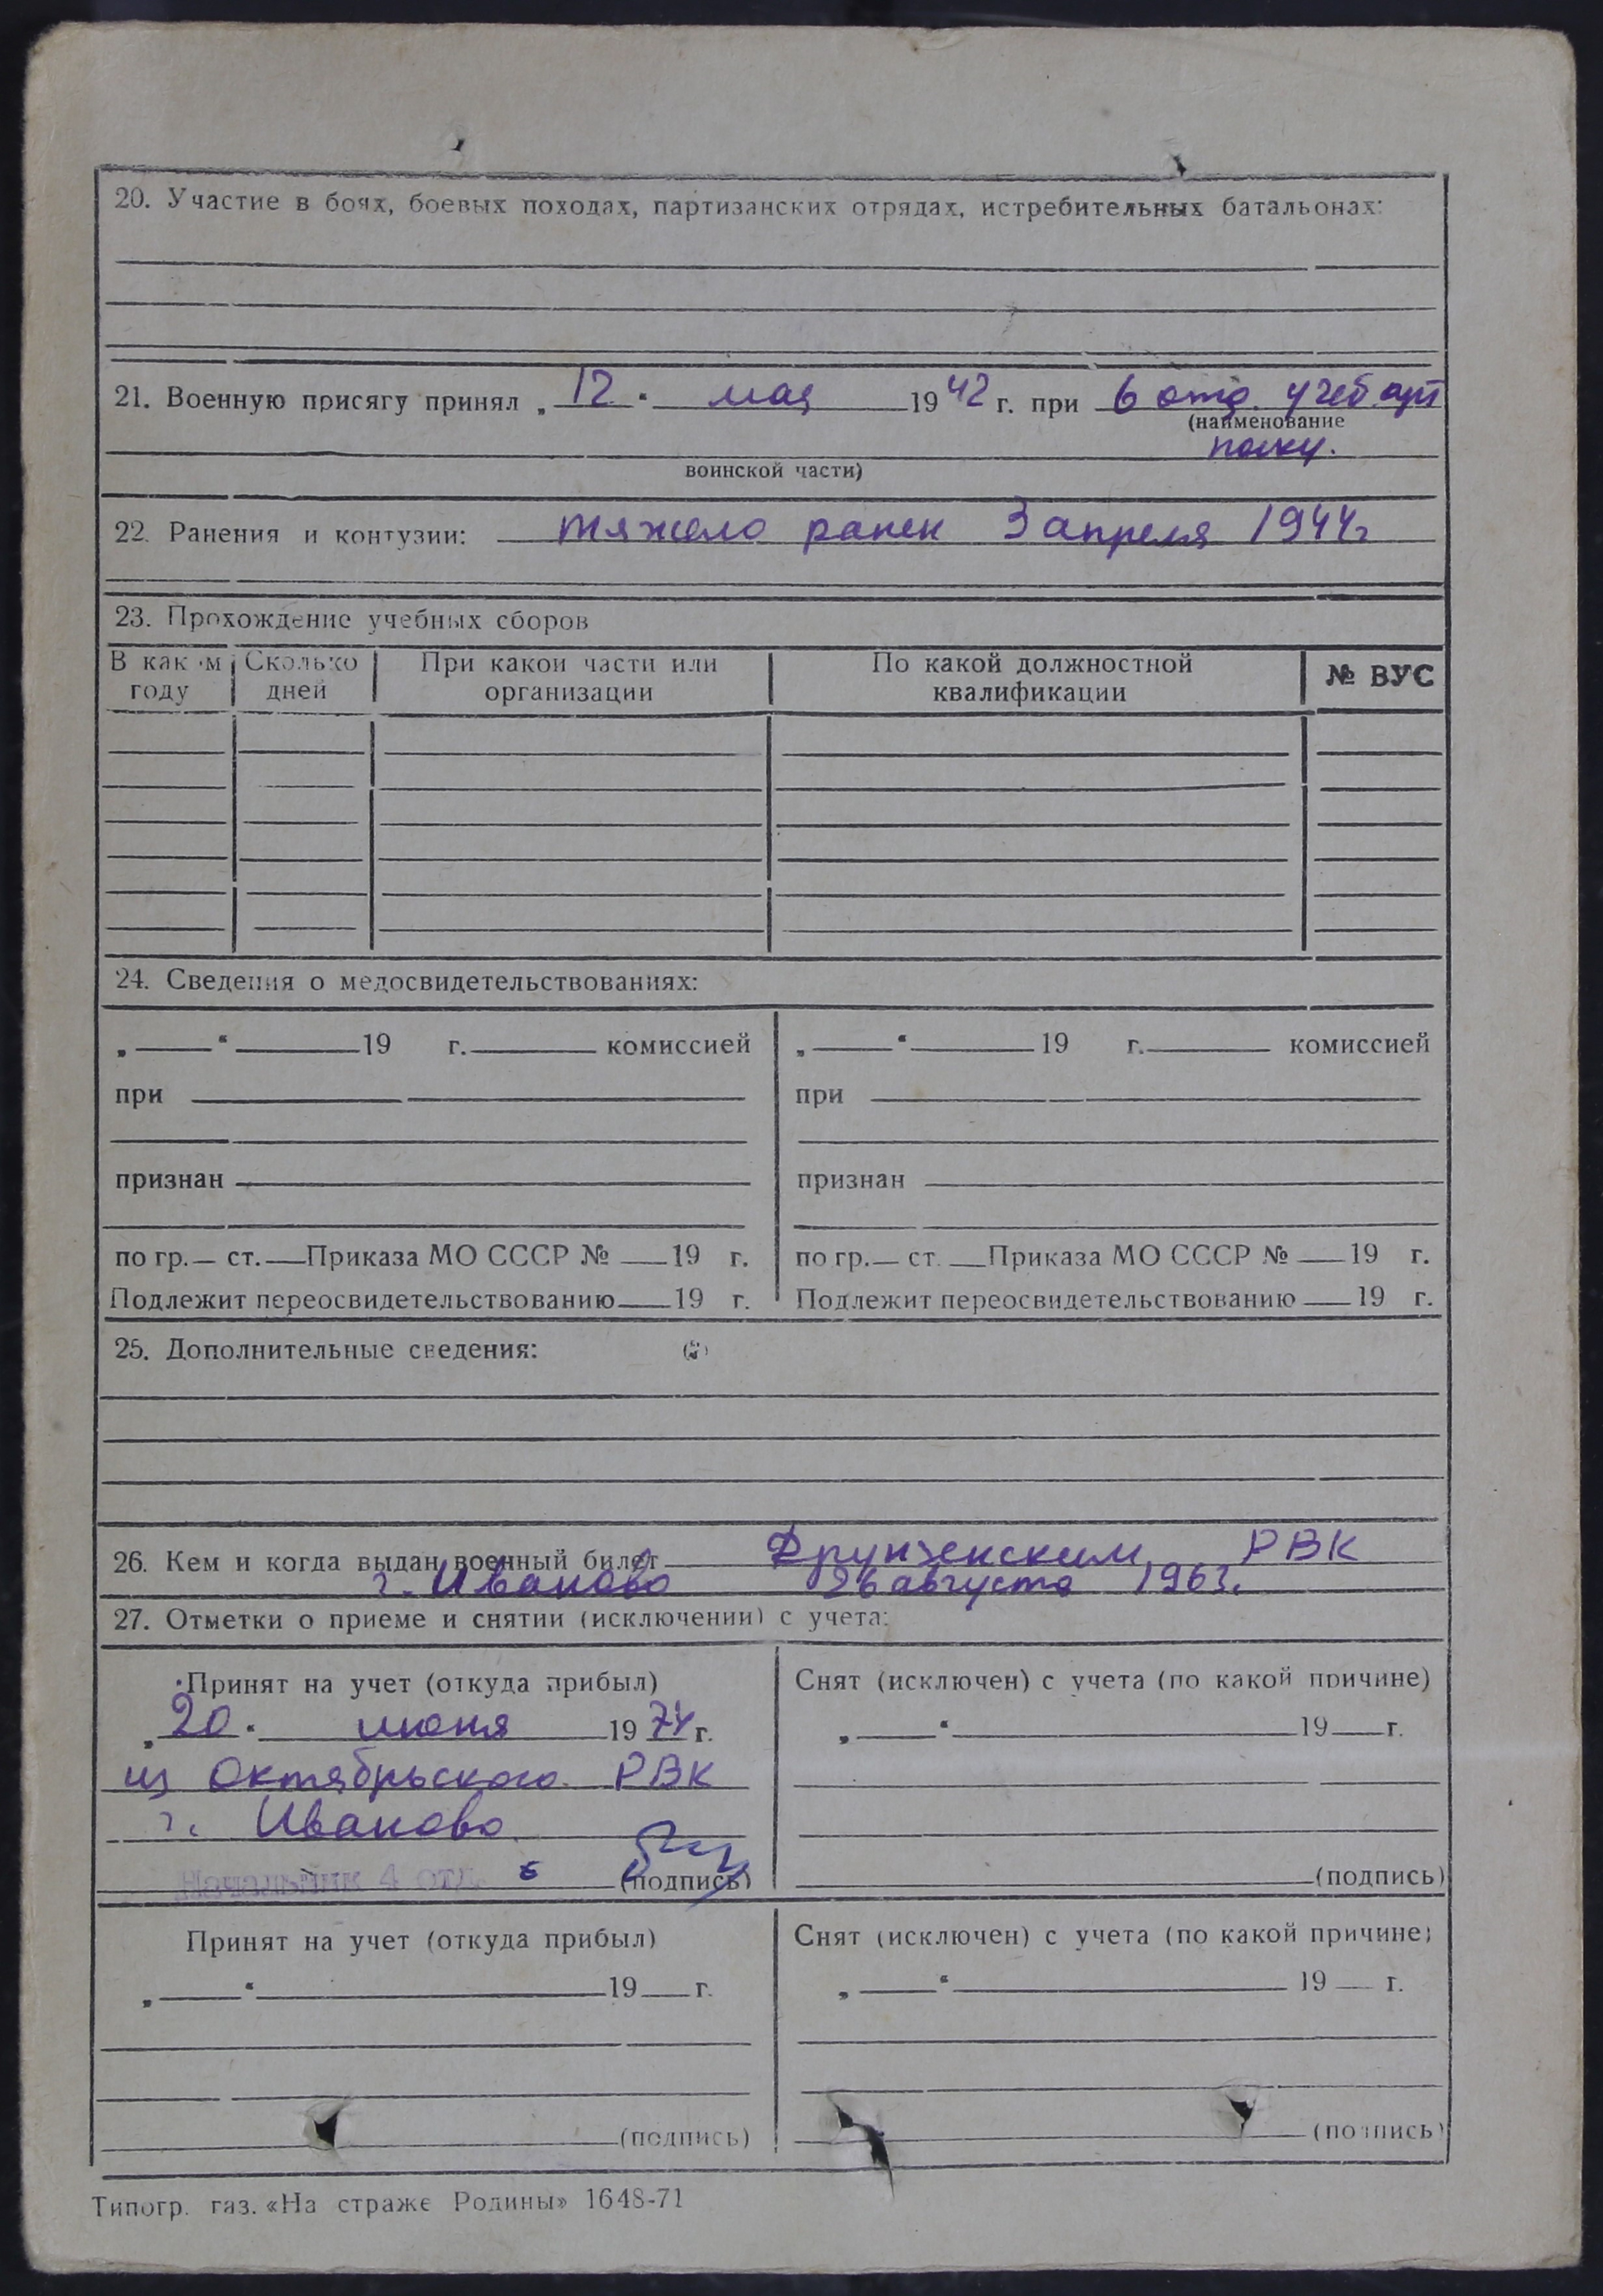 20. Участие в боях, боевых походах, партизанских отрядах, истребительных батальонах:
21. Военную присягу принял „12“ мая 1942 г. при 6 отд. учеб. арт
(наименование
полку.
воинской части)
22. Ранения и контузии: тяжело ранен 3 апреля 1944 г
23. Прохождение учебных сборов
В как м Сколько При какой части или По какой должностной № ВУС
году дней организации квалификации
24. Сведения о медосвидетельствованиях:
„ “ 19 г. комиссией „ “ 19 г. комиссией
при при
признан признан
по гр. ст. Приказа МО СССР № 19 г. по гр. ст. Приказа МО СССР № 19 г.
Подлежит переосвидетельствованию 19 г. Подлежит переосвидетельствованию 19 г.
25. Дополнительные сведения:
26. Кем и когда выдан военный билет Фрунзенским РВК
г. Иваново 26 августа 1963.
27. Отметки о приеме и снятии (исключении) с учета:
Принят на учет (откуда прибыл) Снят (исключен) с учета (по какой причине)
„20“ июня 1974 г. „ “ 19 г.
из Октябрьского РВК
г. Иваново
Начальник 4 отд. (подпись) (подпись)
Принят на учет (откуда прибыл) Снят (исключен) с учета (по какой причине)
„ “ 19 г. „ “ 19 г.
(подпись) (подпись)
Типогр. газ. «На страже Родины» 1648-71